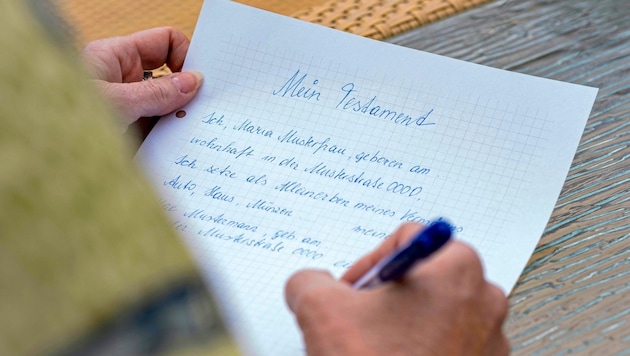 Mein Testamend
Ich, Maria Musterfrau, geboren am
wohnhaft in der Musterstraße 0000.
Ich setze als Alleinerben meines
Auto, Haus, Münzen mein
Mustermann, geb. am
Musterstraße 0000